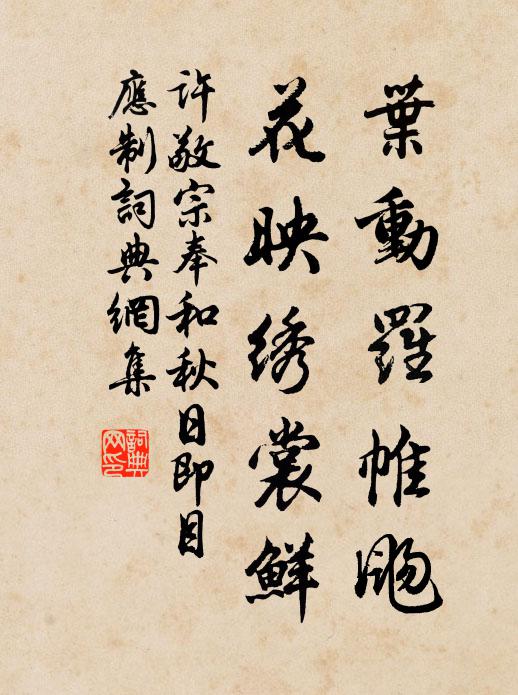 葉動羅帷飏
花映绣裳鮮
許敬宗奉和秋日即目
應制詞典網集
詞典
网印